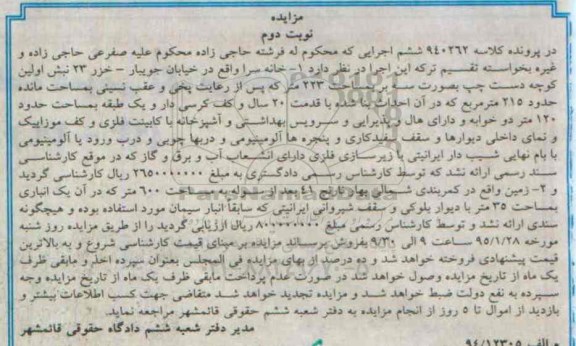 مزایده
نوبت دوم
در پرونده کلاسه ۹۴۰۲۶۲ ششم اجرایی که محکوم له فرشته حاجی زاده محکوم علیه صفرعی حاجی زاده و
غیره بخواسته تقسیم ترکه این اجرا در نظر دارد ۱- خانه سرا واقع در خیابان جویبار - خزر ۲۳ نبش اولین
کوچه دست چپ بصورت سه بر بمساحت ۲۲۳ متر که پس از رعایت پخی و عقب نشینی بمساحت مانده
حدود ۲۱۵ مترمربع که در آن احداث بنا شده با قدمت ۲۰ سال و کف کرسی دار و یک طبقه بمساحت حدود
۱۲۰ متر دو خوابه و دارای هال و پذیرایی و سرویس بهداشتی و آشپزخانه با کابینت فلزی و کف موزاییک
و نمای داخلی دیوارها و سقف سفیدکاری و پنجره ها آلومینیومی و دربها چوبی و درب ورود یا آلومینیومی
با بام نهایی شیب دار ایرانیتی با زیرسازی فلزی دارای انشعاب آب و برق و گاز که در موقع کارشناسی
سند رسمی ارائه نشد که توسط کارشناس رسمی دادگستری به مبلغ ۲۶۵۰۰۰۰۰۰۰ ریال کارشناسی گردید
و ۲- زمین واقع در کمربندی شمالی بهار نارنج ۴۱ بعد از لوله به مساحت ۶۰۰ متر که در آن یک انباری
بمساحت ۳۵ متر با دیوار بلوکی و سقف شیروانی ایرانیتی که سابقا انبار سیمان مورد استفاده بوده و هیچگونه
سندی ارائه نشد و توسط کارشناس رسمی مبلغ ۸۰۰۰۰۰۰۰۰ ریال ارزیابی گردید را از طریق مزایده روز شنبه
مورخه ۹۵/۱/۲۸ ساعت ۹ الی ۹/۳۰ بفروش برساند مزایده بر مبنای قیمت کارشناسی شروع و به بالاترین
قیمت پیشنهادی فروخته خواهد شد و ده درصد از بهای مزایده فی المجلس بعنوان سپرده اخذ و مابقی ظرف
یک ماه از تاریخ مزایده وصول خواهد شد در صورت عدم پرداخت مابقی ظرف یک ماه از تاریخ مزایده وجه
سپرده به نفع دولت ضبط خواهد شد و مزایده تجدید خواهد شد متقاضی جهت کسب اطلاعات بیشتر و
بازدید از اموال تا ۵ روز از انجام مزایده به دفتر شعبه ششم حقوقی قائمشهر مراجعه نماید.
مدیر دفتر شعبه ششم دادگاه حقوقی قائمشهر
م الف ۹۴/۱۲۳۰۵